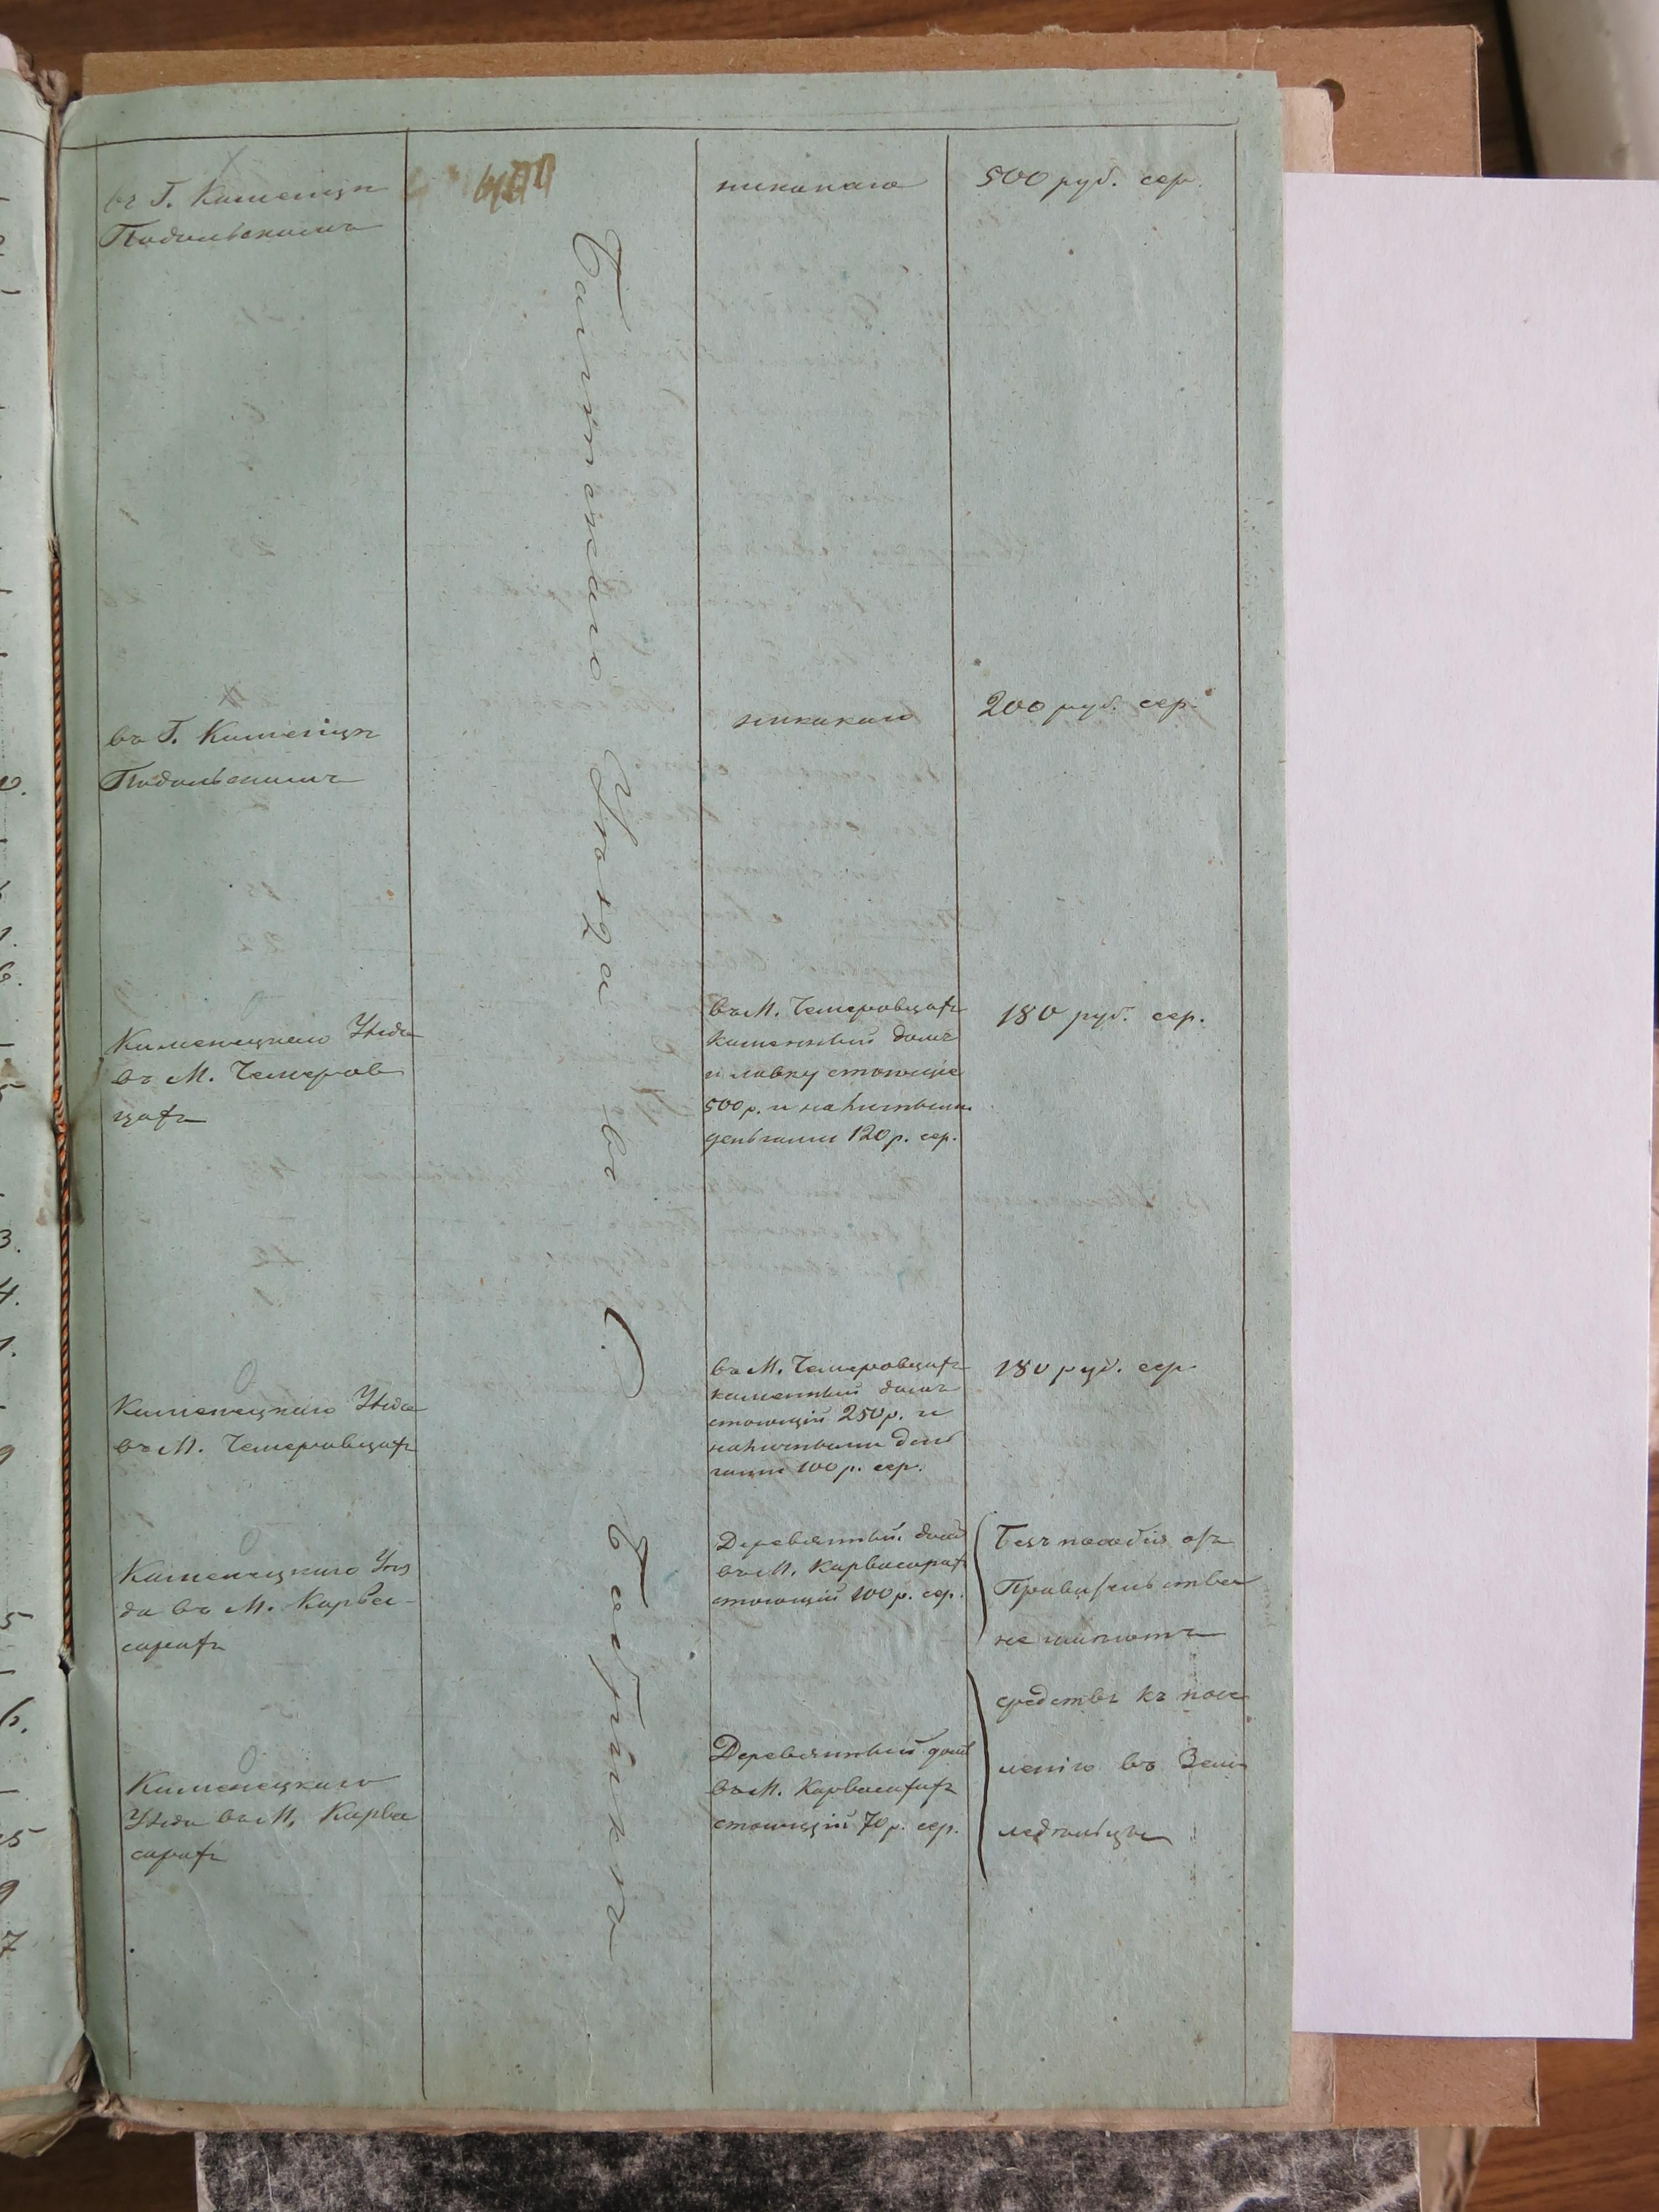 въ Г. Каменцѣ
Подольскомъ
никакого
500 руб. сер.
Балтскаго Уѣзда въ С. Бобрикѣ
въ Г. Каменцѣ
Подольскомъ
никакого
200 руб. сер.
Каменецкаго Уѣзда
въ М. Чемеров
цахъ
въ М. Чемеровцахъ
каменный домъ
и лавку стоющіе
500 р. и наличными
деньгами 120 р. сер.
180 руб. сер.
Каменецкаго Уѣзда
въ М. Чемеровцахъ
въ М. Чемеровцахъ
каменный домъ
стоющій 250 р. и
наличными день
гами 100 р. сер.
180 руб. сер.
Каменецкаго Уѣз
да въ М. Карва-
сарахъ
Деревянный домъ
въ М. Карвасарахъ
стоющій 100 р. сер.
Каменецкаго
Уѣзда въ М. Карва
сарахъ
Деревянный домъ
въ М. Карвасарахъ
стоющій 70 р. сер.
Безъ пособія отъ
Правительства
не имѣютъ
средствъ къ посе
ленію въ Земле